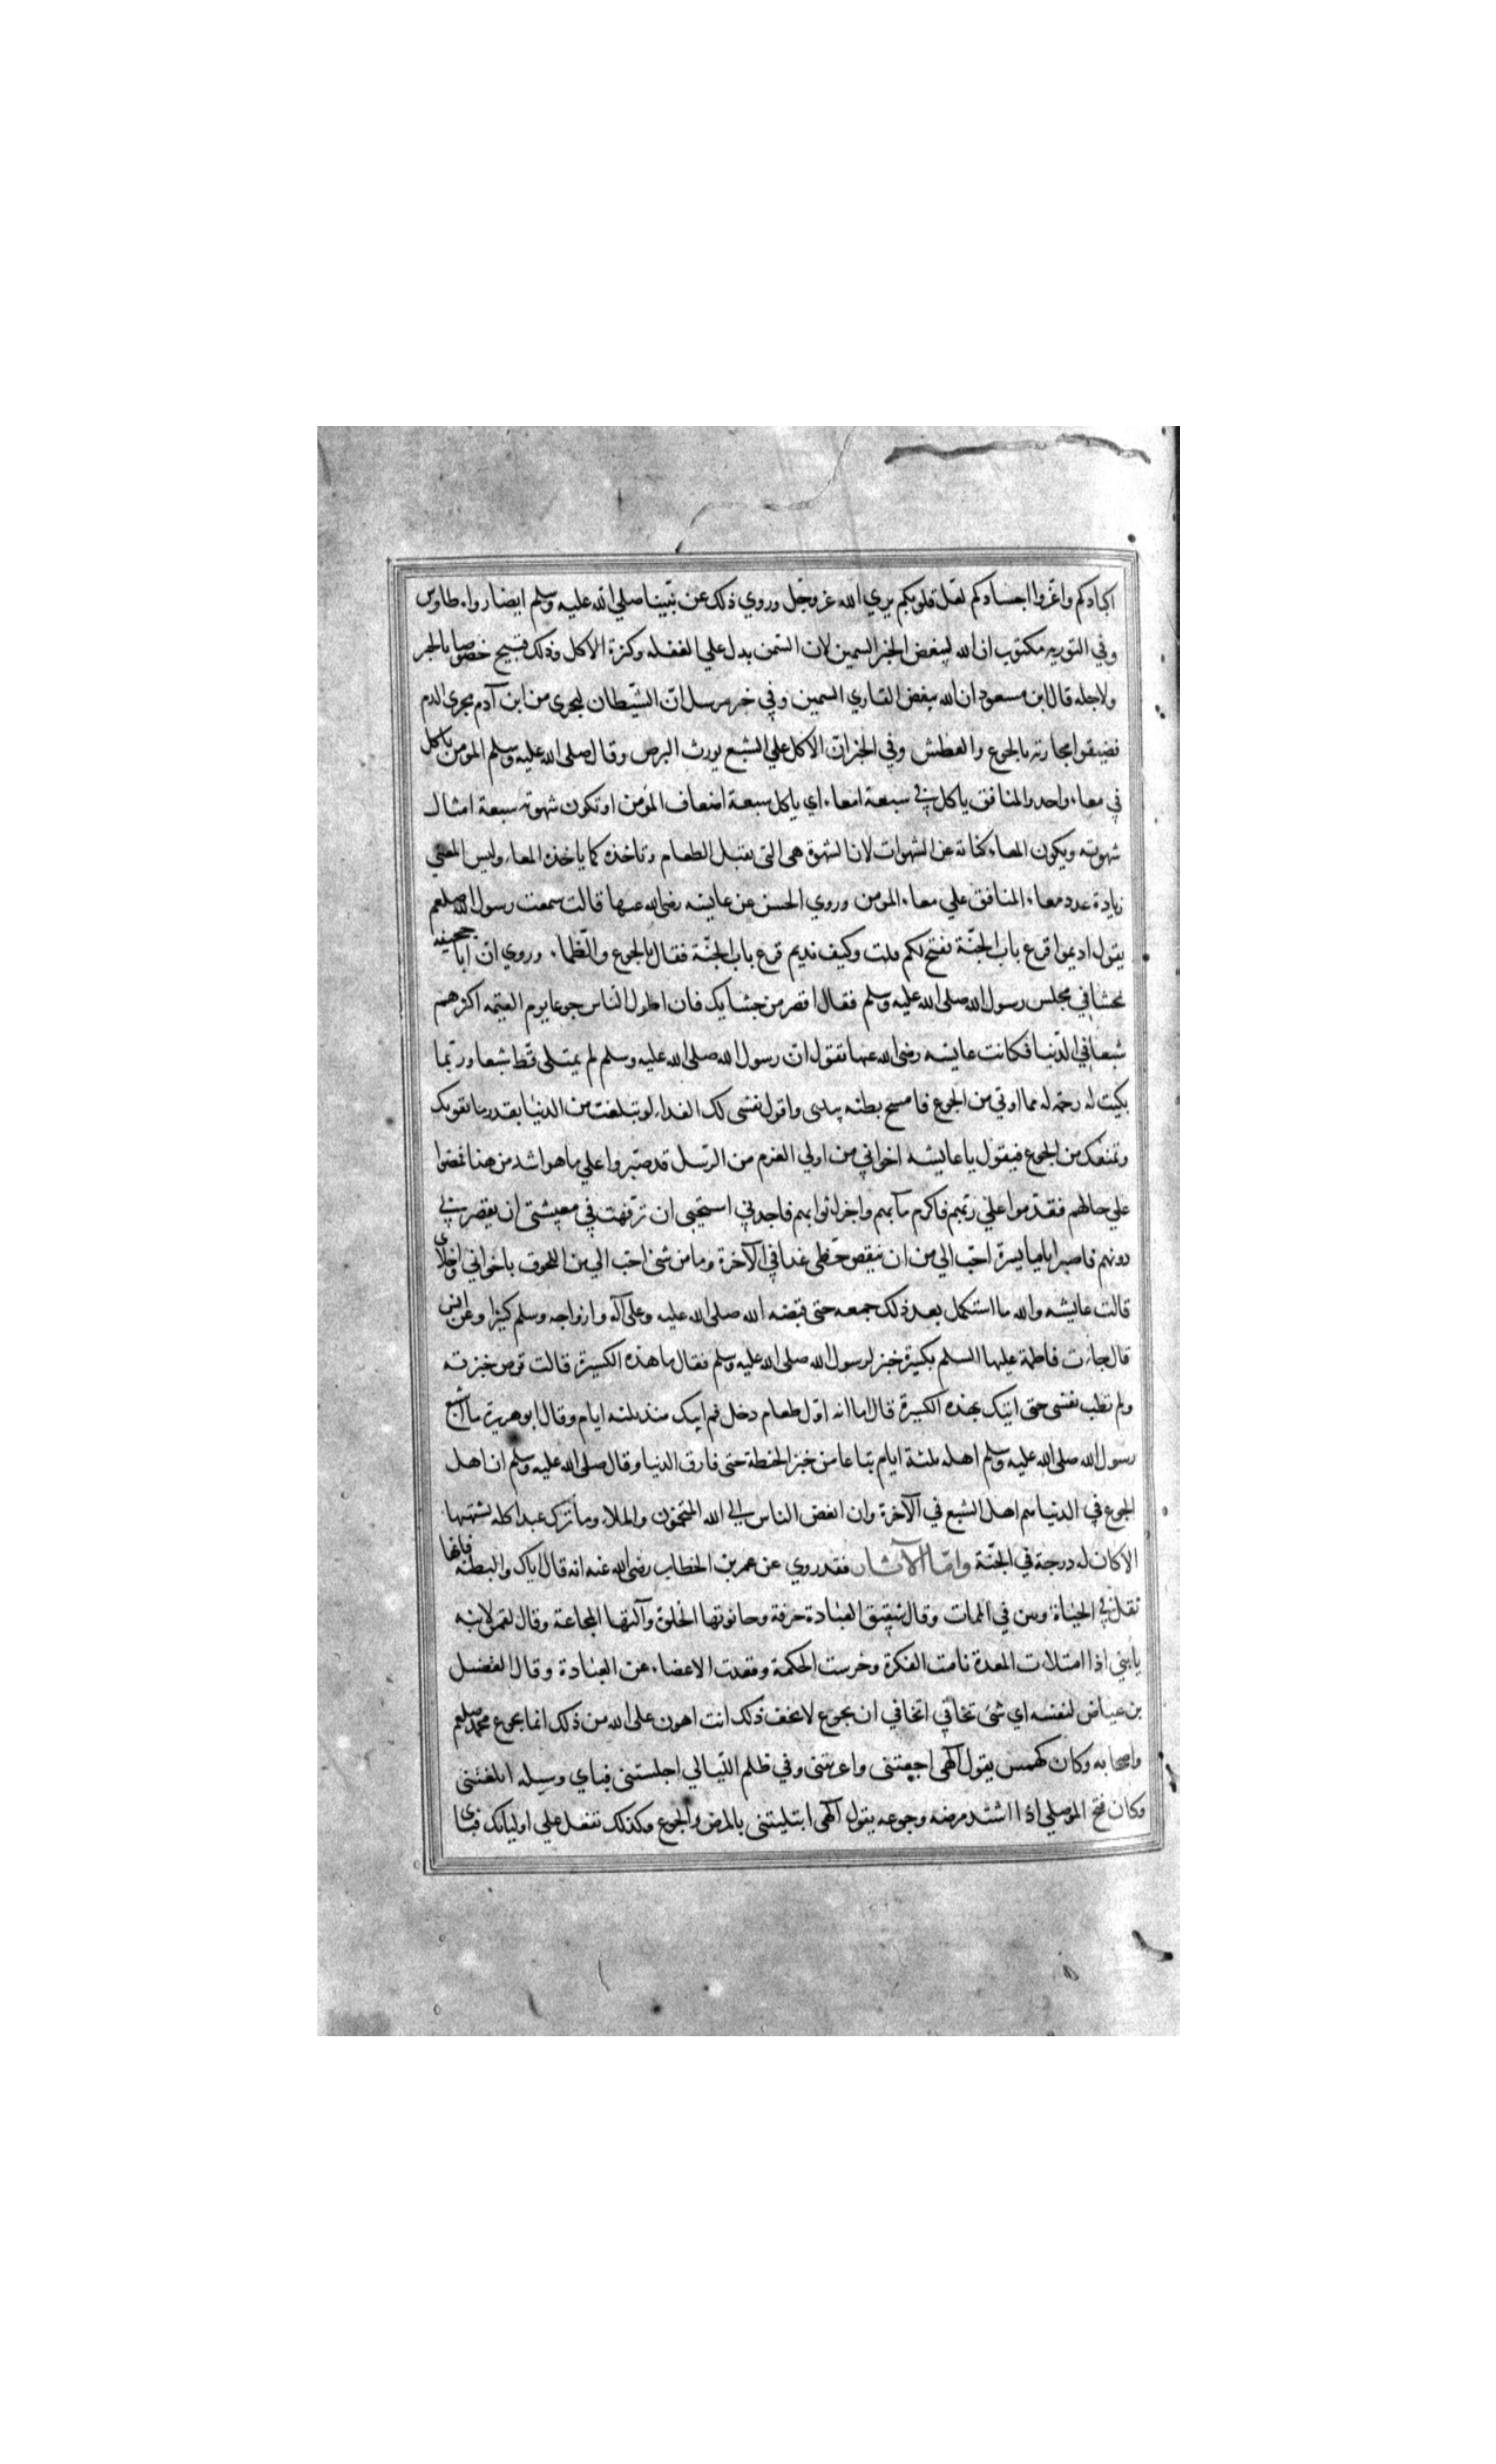 اكبادكم واعروا اجسادكم لعل قلوبكم يري الله عز وجل وروي ذلك عن نبينا صلي الله عليه وسلم ايضا رواه طاوس
وفي التوريه مكتوب ان الله ليبغض الحبر السمين لان السمن يدل علي الغفله وكثرة الاكل وذلك قبيح خصوصا بالحبر
ولاجله قال ابن مسعود ان الله يبغض القاري السمين وفي خبر مرسل ان الشيطان ليجري من ابن آدم مجري الدم
فضيقوا مجاريه بالجوع والعطش وفي الخبر ان الاكل علي الشبع يورث البرص وقال صلي الله عليه وسلم المومن ياكل
في معاء واحد والمنافق ياكل في سبعة امعاء اي ياكل سبعة اضعاف المؤمن او تكون شهوته سبعة امثال
شهوته ويكون المعاء كناية عن الشهوات لان الشهوة هي التي يقبل الطعام وتاخذه كما ياخذه المعاء وليس المعني
زيادة عدد معاء المنافق علي معاء المومن وروي الحسن عن عايشه رضي الله عنها قالت سمعت رسول الله صلعم
يقول اديموا قرع باب الجنة تفتح لكم قلت وكيف نديم قرع باب الجنة فقال بالجوع والظماء وروي ان ابا جحيفه
تجشا في مجلس رسول الله صلي الله عليه وسلم فقال اقصر من جشايك فان اطول الناس جوعا يوم القيمه اكثرهم
شبعا في الدنيا فكانت عايشه رضي الله عنها تقول ان رسول الله صلي الله عليه وسلم لم يمتلي قط شبعا وربما
بكيت له رحمة له مما اوتي من الجوع فامسح بطنه بيدي واقول نفسي لك الفداء لو تبلغت من الدنيا بقدر ما يقويك
وتمنعك من الجوع فيقول يا عايشه اخواني من اولي العزم من الرسل قد صبروا علي ما هو اشد من هذا فمضوا
علي حالهم فقدموا علي ربهم فاكرم مآبهم واجزل ثوابهم فاجدني استحيي ان ترفهت في معيشتي ان يقصر بي
دونهم فاصبر اياما يسيرة احب الي من ان ينقص حظي غدا في الآخرة وما من شئ احب الي من اللحوق باخواني واخلاي
قالت عايشه والله ما استكمل بعد ذلك جمعه حتي قبضه الله صلي الله عليه وعلي آله وازواجه وسلم كثيرا وعن انس
قال جاءت فاطمة عليها السلم بكسرة خبز لرسول الله صلي الله عليه وسلم فقال ما هذه الكسرة قالت قرص خبزته
ولم تطب نفسي حتي اتيتك بهذه الكسرة قال اما انه اول طعام دخل فم ابيك منذ ثلثه ايام وقال ابو هريرة ما اشبع
رسول الله صلي الله عليه وسلم اهله ثلثة ايام تباعا من خبز الحنطة حتي فارق الدنيا وقال صلي الله عليه وسلم ان اهل
الجوع في الدنيا هم اهل الشبع في الآخرة وان ابغض الناس الي الله المتخمون والملاء وما ترك عبد اكله يشتهيها
الا كان له درجة في الجنة واما الآثار فقد روي عن عمر بن الخطاب رضي الله عنه انه قال اياك والبطنه فانها
ثقل في الحيوة ونتن في الممات وقال شقيق العبادة حرفة وحانوتها الخلوة وآلتها المجاعة وقال لقمن لابنه
يا بني اذا امتلات المعدة نامت الفكرة وخرست الحكمة وقعدت الاعضاء عن العبادة وقال الفضيل
بن عياض لنفسه اي شئ تخافي اتخافي ان يجوع لا تخف ذلك انت اهون علي الله من ذلك انما يجوع محمد صلعم
واصحابه وكان كهمس يقول الهي اجعتني واعريتني وفي ظلم الليالي اجلستني فباي وسيله ابلغتني
وكان فتح الموصلي اذا اشتد مرضه وجوعه يقول الهي ابتليتني بالمرض والجوع وكذلك تفعل علي اوليائك فباي